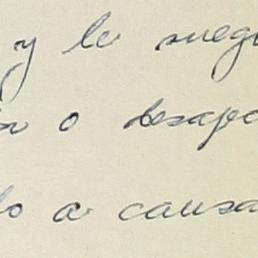 y le rueg
o desapa
o a causa